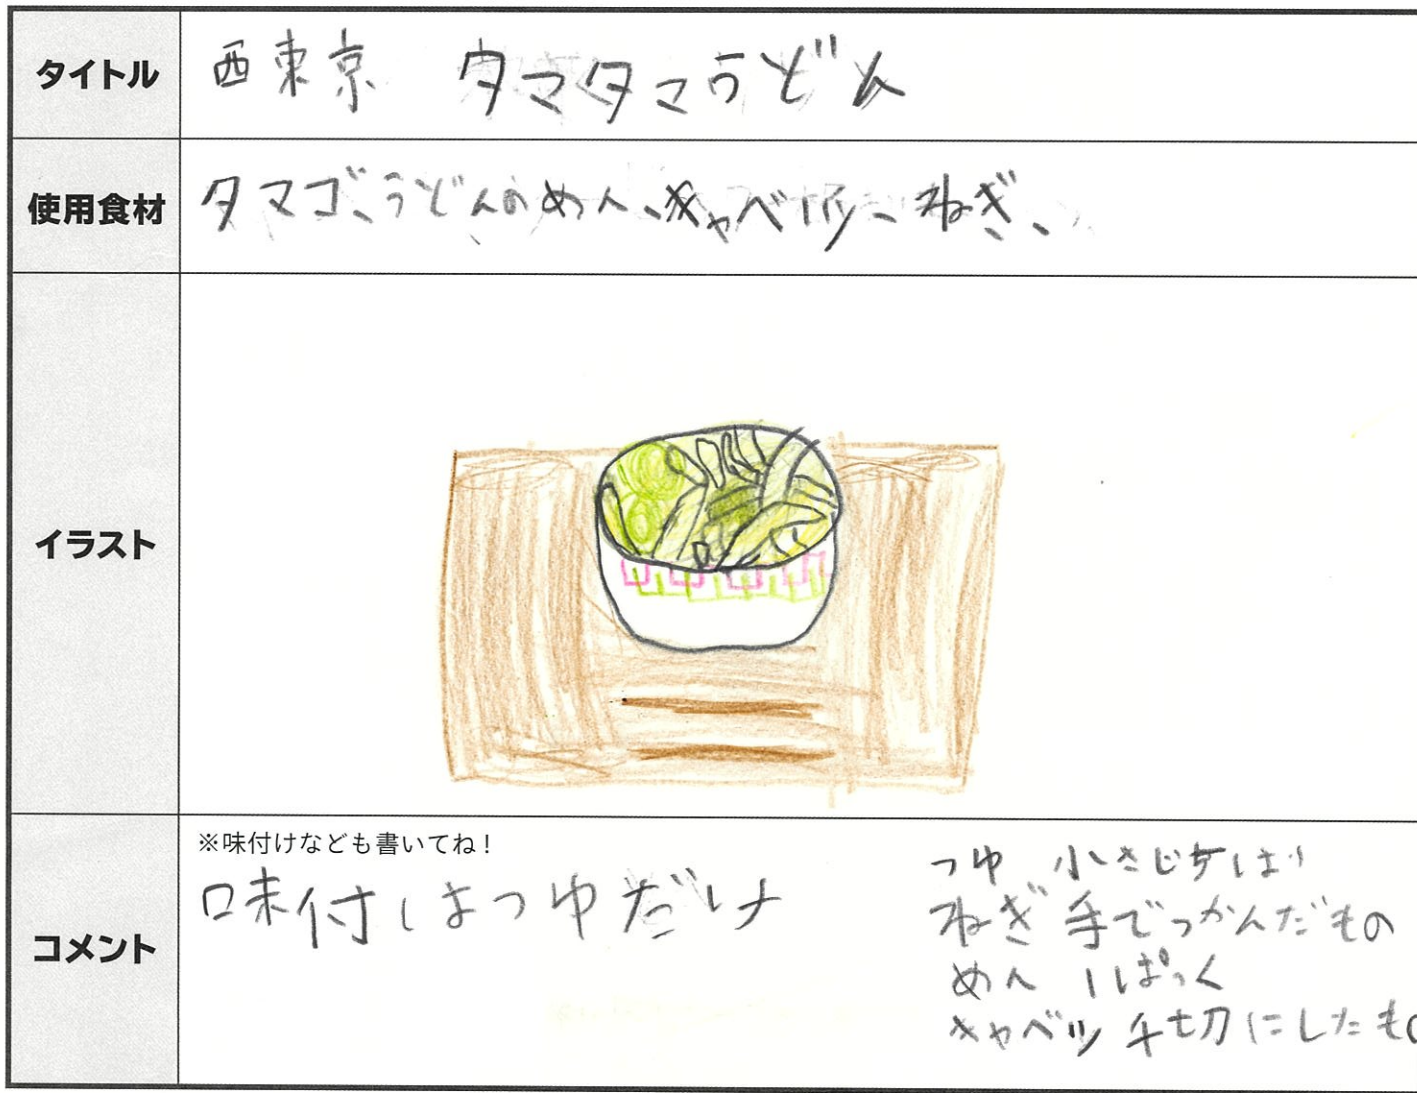 タイトル
西東京 タマタマうどん
使用食材
タマゴ、うどんのめん、キャベツ、ねぎ、
イラスト
コメント
※味付けなども書いてね!
味付はつゆだけ
つゆ 小さじ
ねぎ 手でつかんだもの
めん 1ぱっく
キャベツ 千切にしたもの